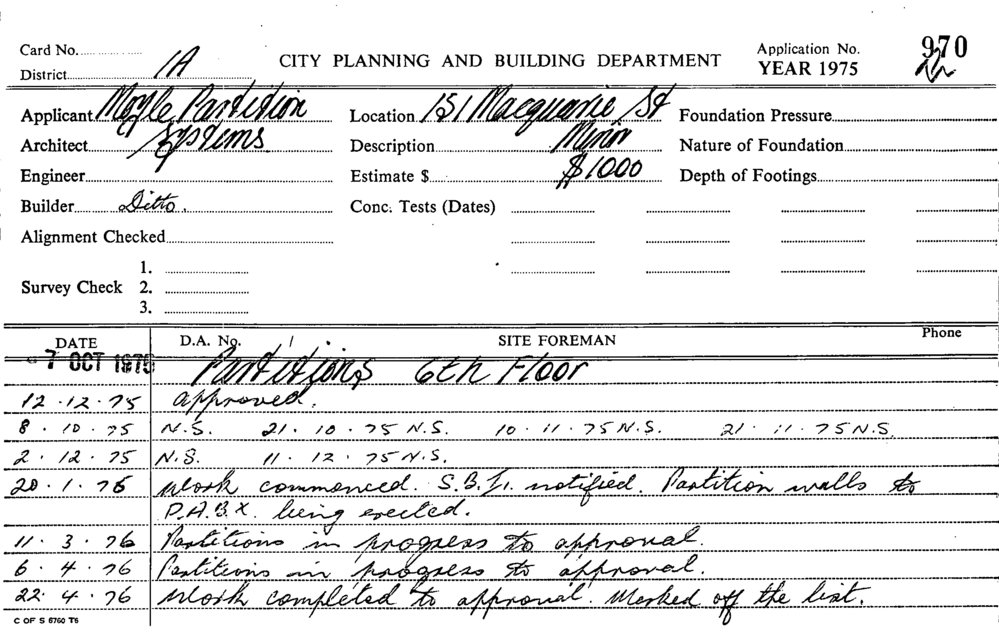 Card No.
District 1A
CITY PLANNING AND BUILDING DEPARTMENT
Application No. 970
YEAR 1975
Applicant Moyle Partition
Location 151 Macquarie St
Foundation Pressure
Architect Systems
Description Minor
Nature of Foundation
Engineer
Estimate $ $1000
Depth of Footings
Builder Ditto.
Conc. Tests (Dates)
Alignment Checked
1.
Survey Check 2.
3.
DATE D.A. No. SITE FOREMAN Phone
7 OCT 1975 Partitions 6th Floor
12.12.75 approved.
8.10.75 N.S. 21.10.75 N.S. 10.11.75 N.S. 21.11.75 N.S.
2.12.75 N.S. 11.12.75 N.S.
20.1.76 Work commenced. notified. Partition walls to
P.A.B.X. being erected.
11.3.76 Partitions in progress to approval.
6.4.76 Partitions in progress to approval.
22.4.76 Work completed to approval. Marked off the list.
C OF S 6760 T6